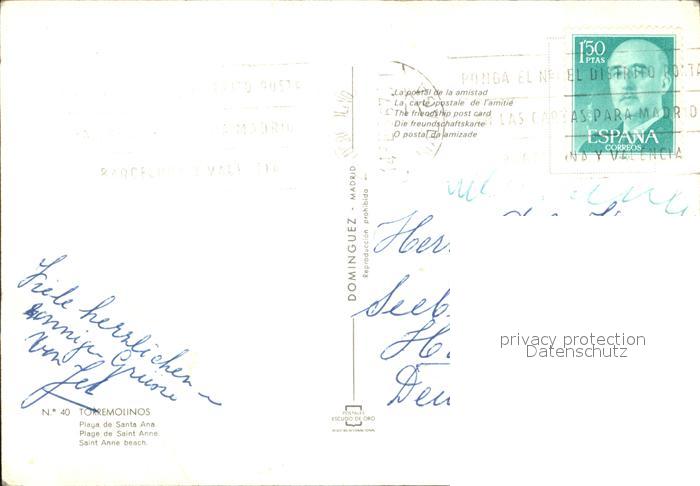 La postal de la amistad
La carte postale de l'amitié
The friendship post card
Die freundschaftskarte
O postal da amizade
1'50
PTAS
ESPAÑA
CORREOS
PONGA EL Nº EL DISTRITO POSTA
LAS CARTAS PARA MADRID
NA Y VALENCIA
DISTRITO POSTA
MADRID
BARCELONA Y VALE
DOMINGUEZ - MADRID
Reproducción prohibida
Viele herzlichen
sonnige Grüsse
von
Her
Seeb
H
Deu
privacy protection
Datenschutz
N.º 40 TORREMOLINOS
Playa de Santa Ana.
Plage de Saint Anne.
Saint Anne beach.
POSTALES
ESCUDO DE ORO